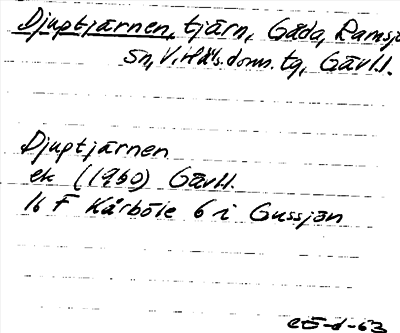 Djuptjärnen, tjärn, Gåda, Ramsjö
Sn, V. Häls. doms. tg, GävlI.
Djuptjärnen
ek (1960) GävlI.
16 F Kårböle 6 i Gussjön